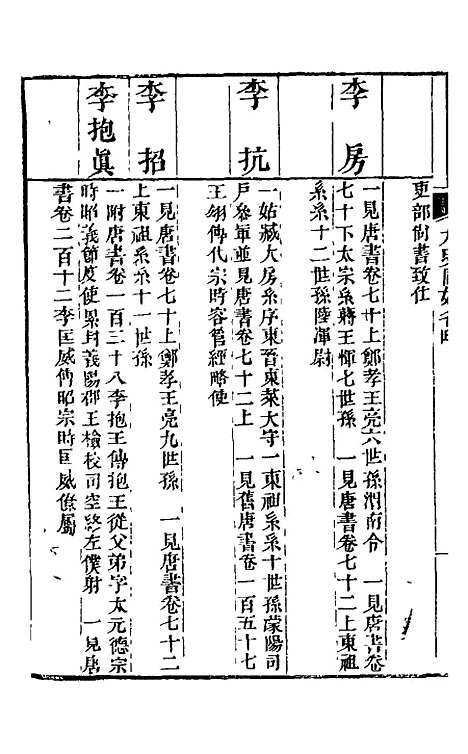 吏部尚書致仕
李房
一見唐書卷七十上鄭孝王亮六世孫渭南令 一見唐書卷
七十下太宗系蔣王惲七世孫 一見唐書卷七十二上東祖
系系十二世孫陸渾尉
李抗
一姑臧大房系序東晉東萊太守一東祖系系十世孫濛陽司
戶參軍並見唐書卷七十二上 一見舊唐書卷一百五十七
王翃傳代宗時容管經略使
李招
一見唐書卷七十上鄭孝王亮九世孫 一見唐書卷七十二
上東祖系系十一世孫
李抱眞
一附唐書卷一百三十八李抱玉傳抱玉從父弟字太元德宗
時昭義節度使累封義陽郡王檢校司空終左僕射 一見唐
書卷二百十二李匡威傳昭宗時匡威僚屬